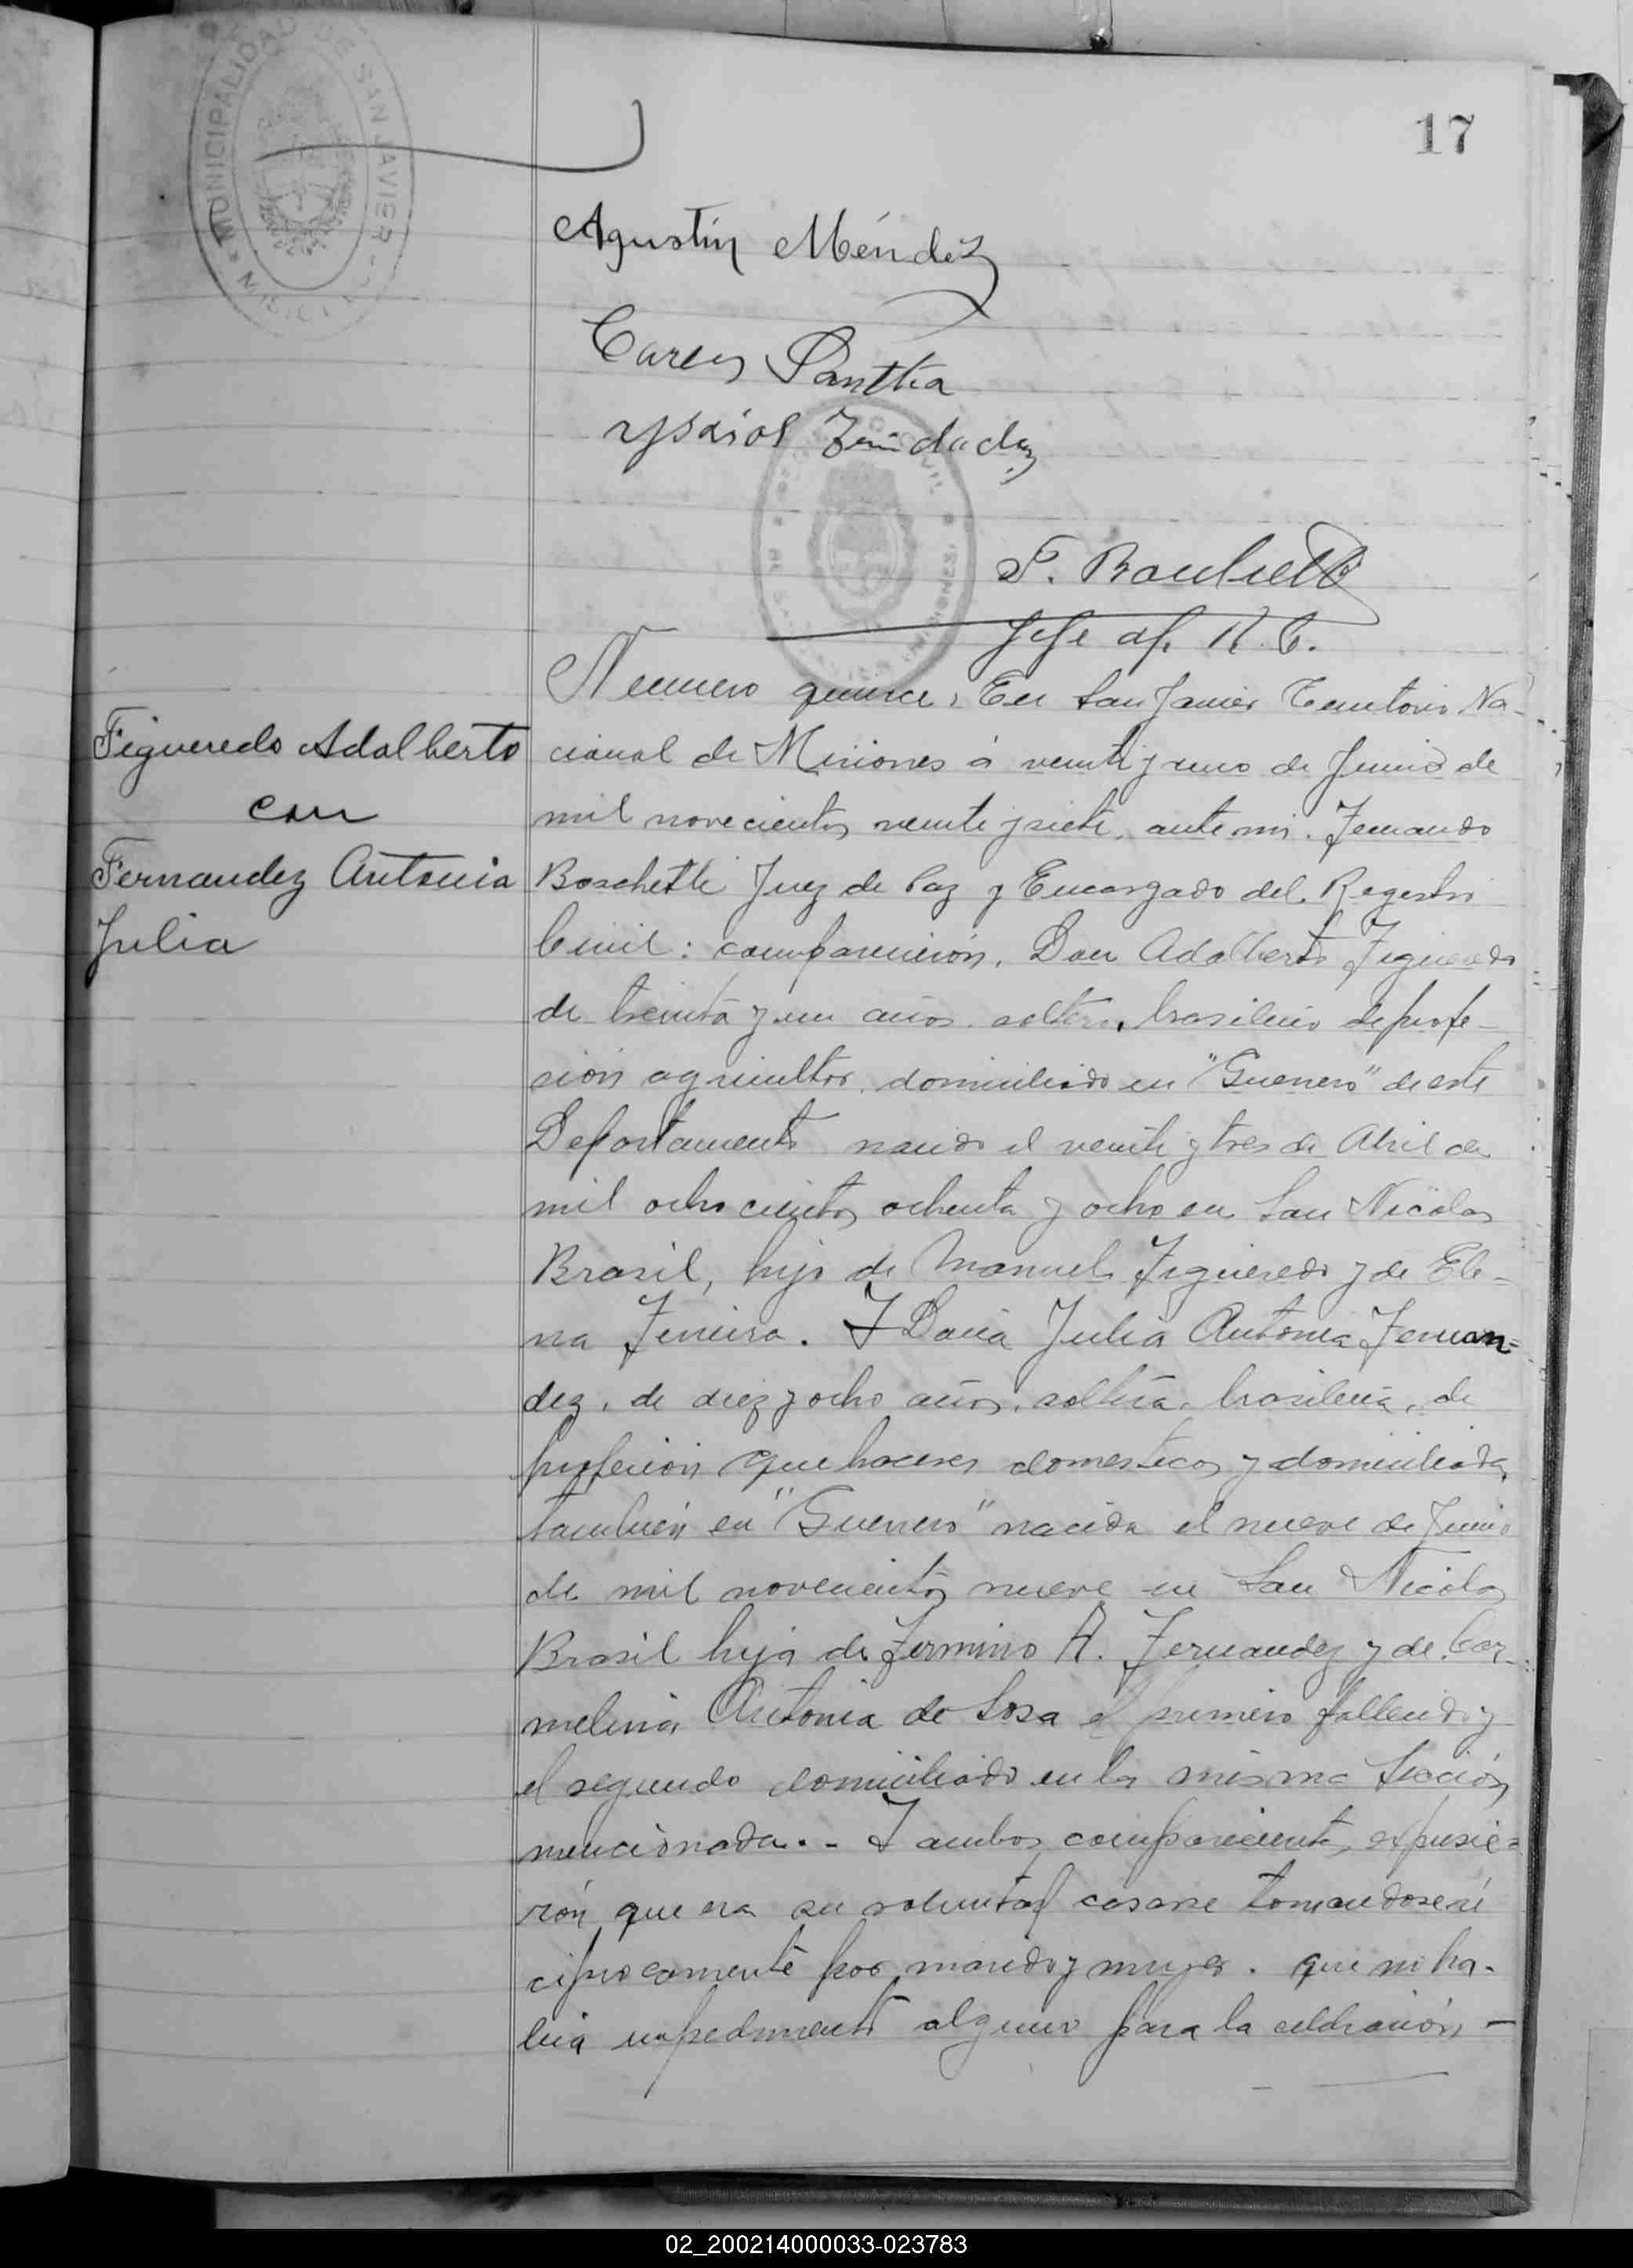 MUNICIPALIDAD DE SAN JAVIER
17
Agustín Méndez
Carlos
F. Boschetti
Jefe del R. C.
Numero quince, En San Javier Territorio Na-
Figueredo Adalberto
con
Fernandez Antonia
Julia
cional de Misiones á veinte y uno de Junio de
mil novecientos veinte y siete, ante mi. Fernando
Boschetti Juez de Paz y Encargado del Registro
Civil: comparecieron, Don Adalberto Figueredo
de treinta y un años, soltero, brasileño de profe-
sion agricultor, domiciliado en "Guerrero" de este
Departamento nacido el veinte y tres de Abril de
mil ochocientos ochenta y ocho en San Nicolas
Brasil, hijo de Manuel Figueredo y de Ele-
na Ferreira. Y Doña Julia Antonia Fernan-
dez, de diez y ocho años, soltera, brasileña, de
profesion quehaceres domesticos y domiciliada
tambien en "Guerrero" nacida el nueve de Junio
de mil novecientos nueve en San Nicolas
Brasil hija de Fermino A. Fernandez y de Car-
melina Antonia de Sosa el primero fallecido y
el segundo domiciliado en la misma Sección
mencionada.- Y ambos comparecientes expusie-
rón que era su voluntad casarse tomandose re
ciprocamente por marido y mujer. que no ha-
bia impedimento alguno para la celebración -
02_200214000033-023783